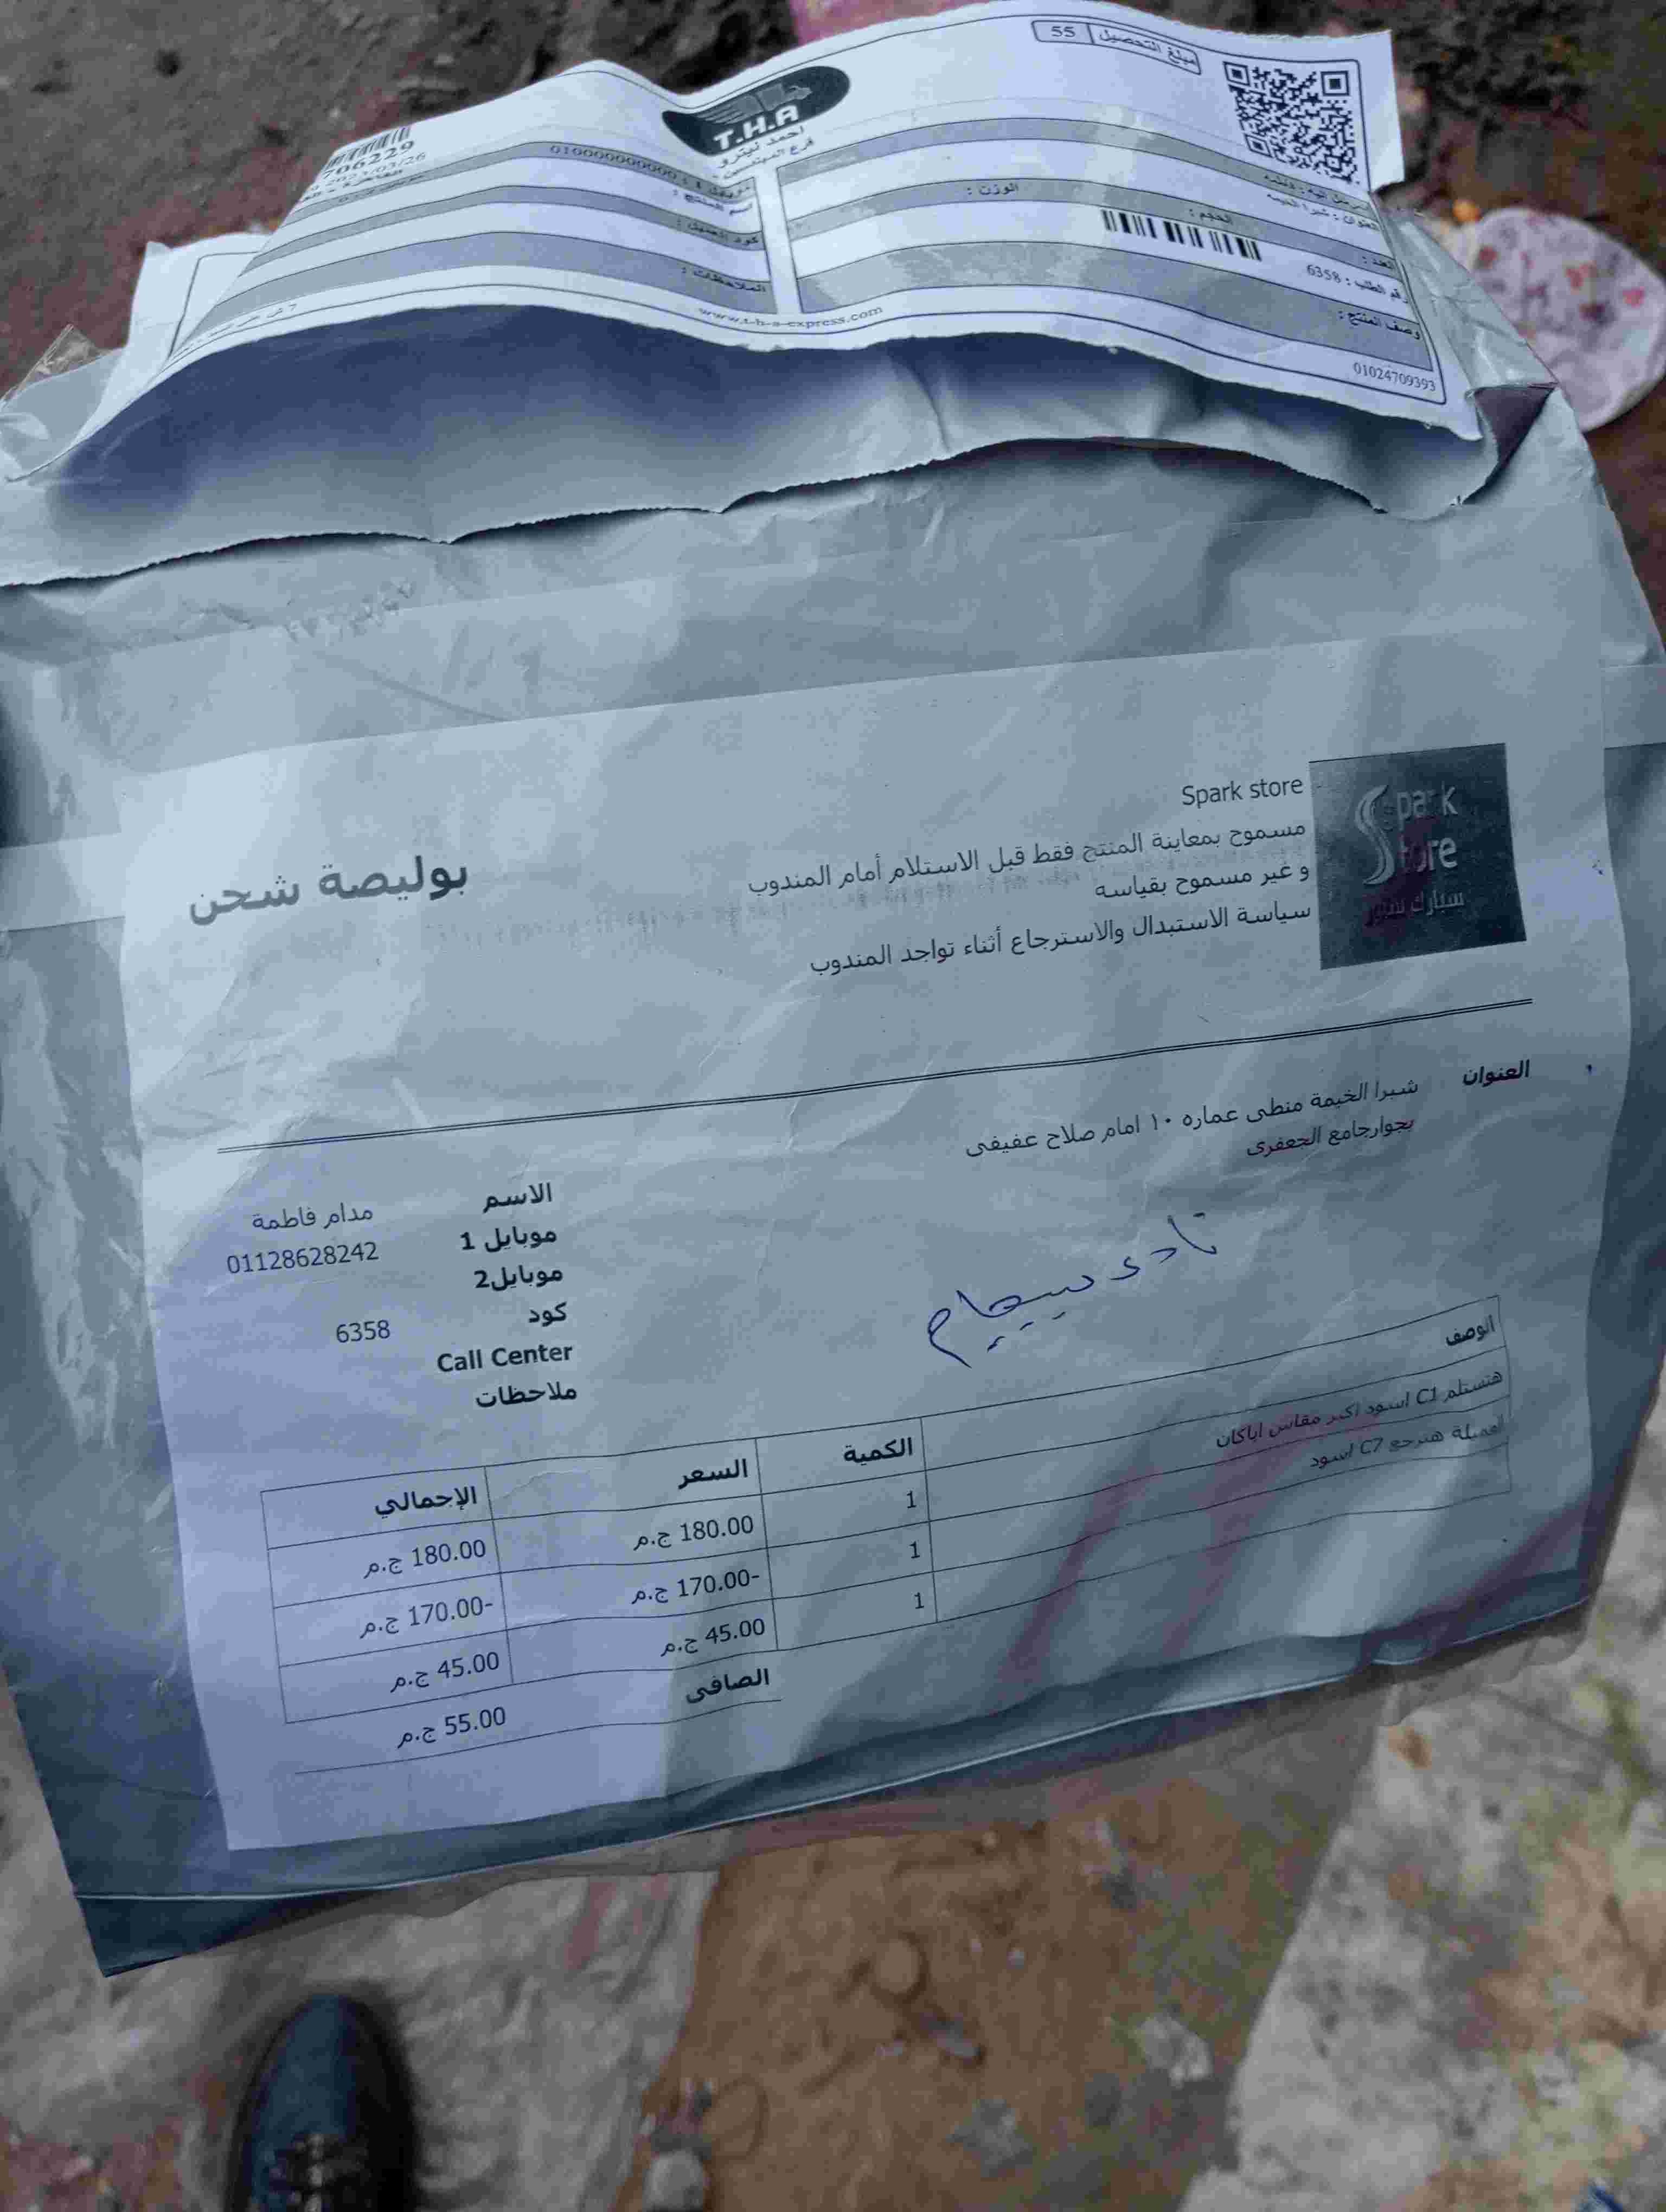 مبلغ التحصيل 55
T.H.A
احمد نيترو
706229
2023/03/26
اسم المنتج :
كود العميل :
الملاحظات :
العنوان : شبرا الخيمة
الحجم :
الوزن :
العدد :
رقم الطلب : 6358
وصف المنتج :
www.t-h-a-express.com
01024709393
Spark store
Spark Store
سبارك ستور
مسموح بمعاينة المنتج فقط قبل الاستلام أمام المندوب
و غير مسموح بقياسه
سياسة الاستبدال والاسترجاع أثناء تواجد المندوب
بوليصة شحن
العنوان شبرا الخيمة منطى عماره ١٠ امام صلاح عفيفى
بجوارجامع الجعفرى
الاسم مدام فاطمة
موبايل 1 01128628242
موبايل2
كود 6358
Call Center
ملاحظات
الوصف الكمية السعر الإجمالي
هتستلم C1 اسود اكبر مقاس اباكان 1 180.00 ج.م 180.00 ج.م
العميلة هترجع C7 اسود 1 -170.00 ج.م -170.00 ج.م
1 45.00 ج.م 45.00 ج.م
الصافى 55.00 ج.م